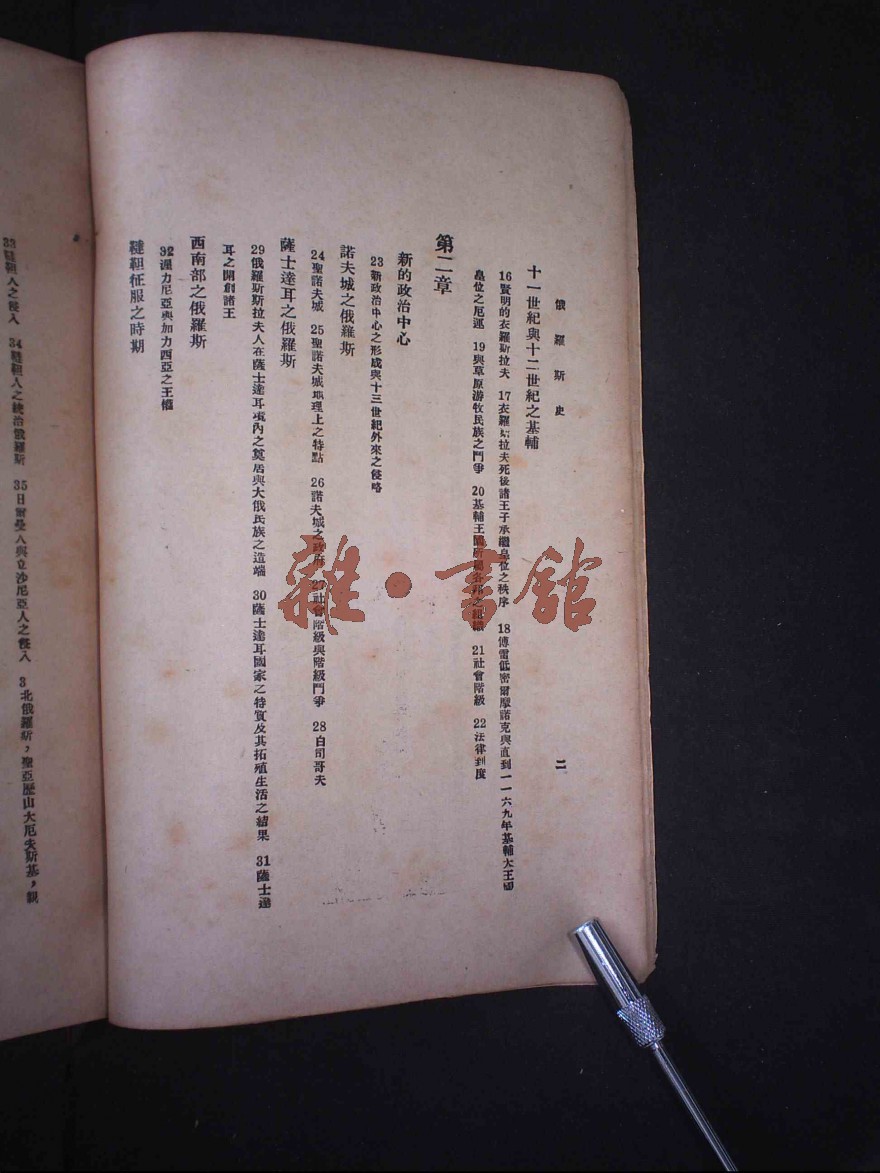 俄羅斯史
二
十一世紀與十二世紀之基輔
16賢明的衣羅斯拉夫 17衣羅斯拉夫死後諸王子承繼皇位之秩序 18傅雷低密爾摩諾克與直到一一六九年基輔大王國
皇位之厄運 19與草原游牧民族之鬥爭 20基輔王國所屬各邦之組織 21社會階級 22法律制度
第二章
新的政治中心
23新政治中心之形成與十三世紀外來之侵略
諾夫城之俄羅斯
24聖諾夫城 25聖諾夫城地理上之特點 26諾夫城之政府 27社會階級與階級鬥爭 28白司哥夫
薩士達耳之俄羅斯
29俄羅斯斯拉夫人在薩士達耳境內之奠居與大俄民族之造端 30薩士達耳國家之特質及其拓殖生活之結果 31薩士達
耳之開創諸王
西南部之俄羅斯
32渥力尼亞與加力西亞之王
韃靼征服之時期
33韃靼人之侵入 34韃靼人之統治俄羅斯 35日爾曼人與立沙尼亞人之侵入 3北俄羅斯，聖亞歷山大厄夫斯基，親
雜·書館